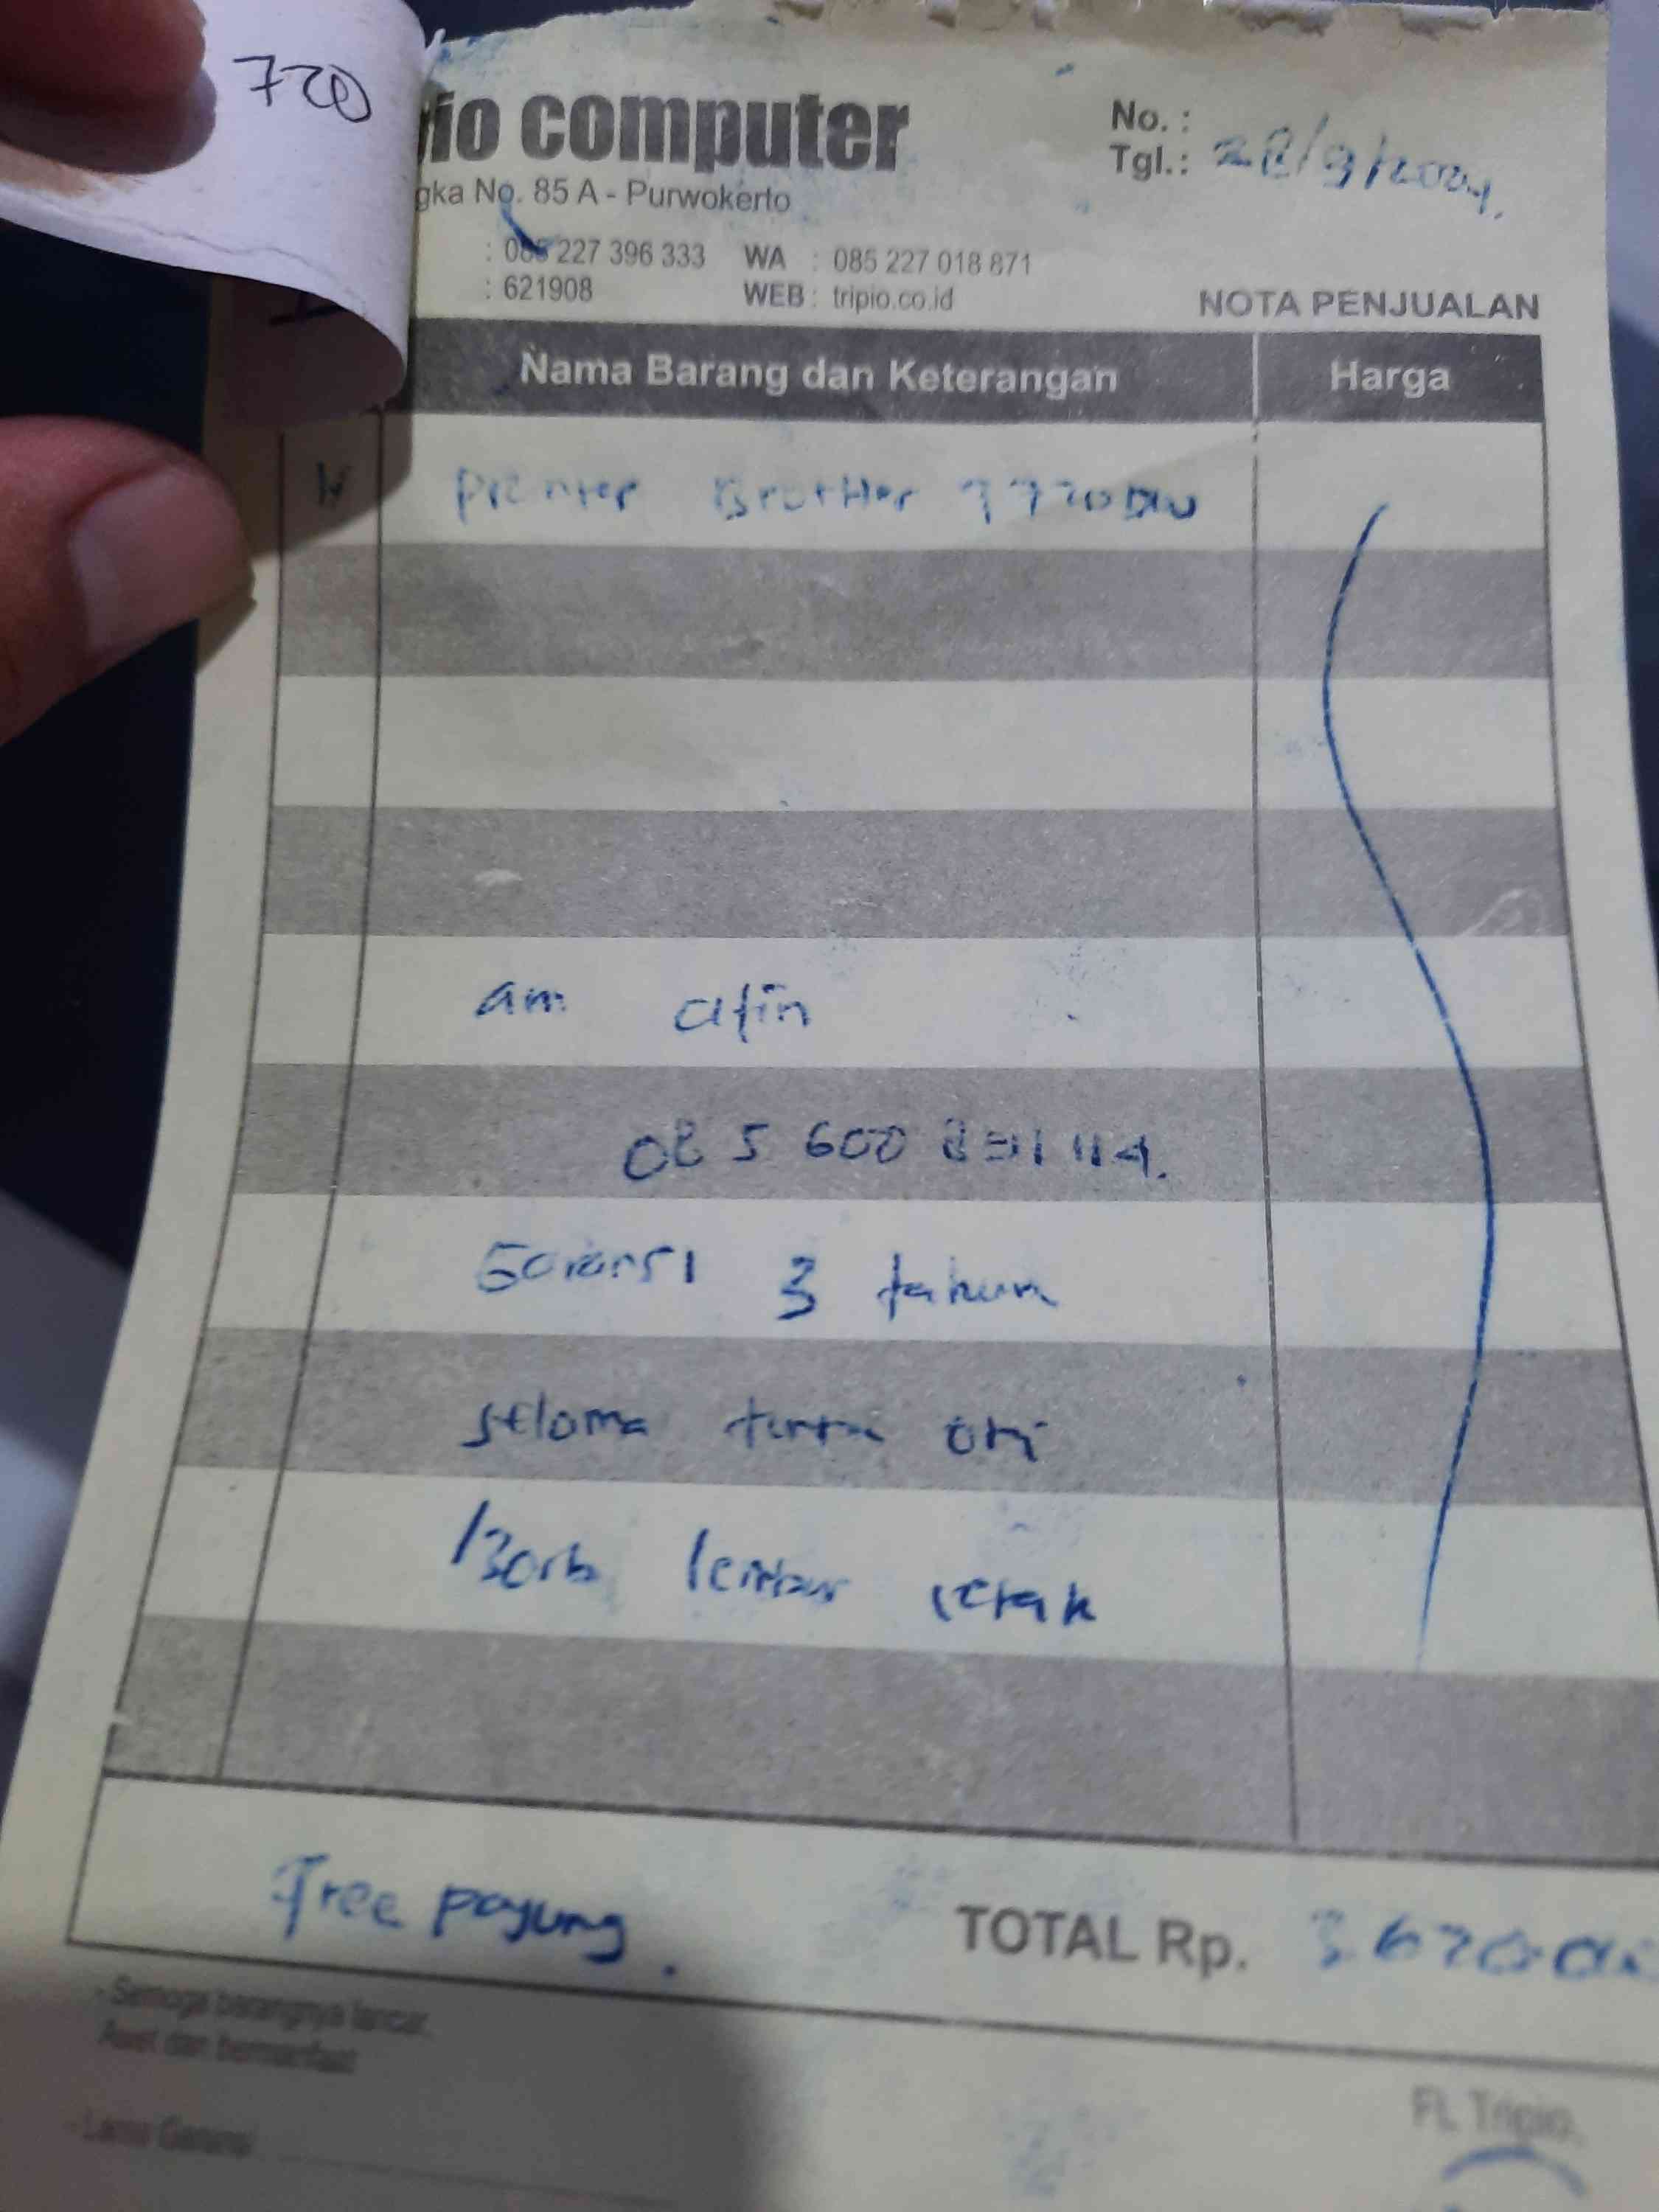 720
io computer
No. :
Tgl.: 28/9/2024.
gka No. 85 A - Purwokerto
: 085 227 396 333 WA : 085 227 018 871
: 621908 WEB : tripio.co.id
NOTA PENJUALAN
Nama Barang dan Keterangan Harga
Printer Brother 7720DW
am afin
085 600 114.
Garansi 3 tahun
selama tinta ori
/30rb lembar cetak
Free payung.
TOTAL Rp. 3670
- Semoga barangnya lancar,
Awet dan bermanfaat
- Lama Garansi
FL Tripio.